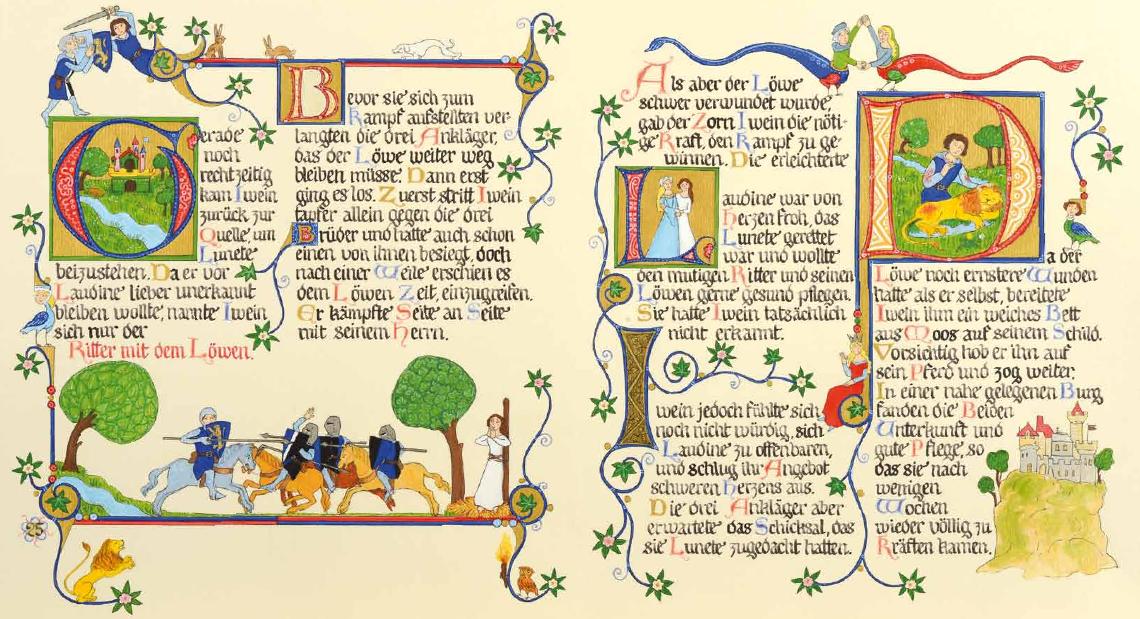 Gerade
noch
rechtzeitig
kam Iwein
zurück zur
Quelle, um
Lunete
beizustehen. Da er vor
Laudine lieber unerkannt
bleiben wollte, nannte Iwein
sich nur der
Ritter mit dem Löwen.
Bevor sie sich zum
Kampf aufstellten ver-
langten die drei Ankläger,
das der Löwe weiter weg
bleiben müsse. Dann erst
ging es los. Zuerst stritt Iwein
tapfer allein gegen die drei
Brüder und hatte auch schon
einen von ihnen besiegt, doch
nach einer Weile erschien es
dem Löwen Zeit, einzugreifen.
Er kämpfte Seite an Seite
mit seinem Herrn.
25
Als aber der Löwe
schwer verwundet wurde,
gab der Zorn Iwein die nöti-
ge Kraft, den Kampf zu ge-
winnen. Die erleichterte
Laudine war von
Herzen froh, das
Lunete gerettet
war und wollte
den mutigen Ritter und seinen
Löwen gerne gesund pflegen.
Sie hatte Iwein tatsächlich
nicht erkannt.
Iwein jedoch fühlte sich
noch nicht würdig, sich
Laudine zu offenbaren,
und schlug ihr Angebot
schweren Herzens aus.
Die drei Ankläger aber
erwartete das Schicksal, das
sie Lunete zugedacht hatten.
Da der
Löwe noch ernstere Wunden
hatte als er selbst, bereitete
Iwein ihm ein weiches Bett
aus Moos auf seinem Schild.
Vorsichtig hob er ihn auf
sein Pferd und zog weiter.
In einer nahe gelegenen Burg
fanden die Beiden
Unterkunft und
gute Pflege, so
das sie nach
wenigen
Wochen
wieder völlig zu
Kräften kamen.